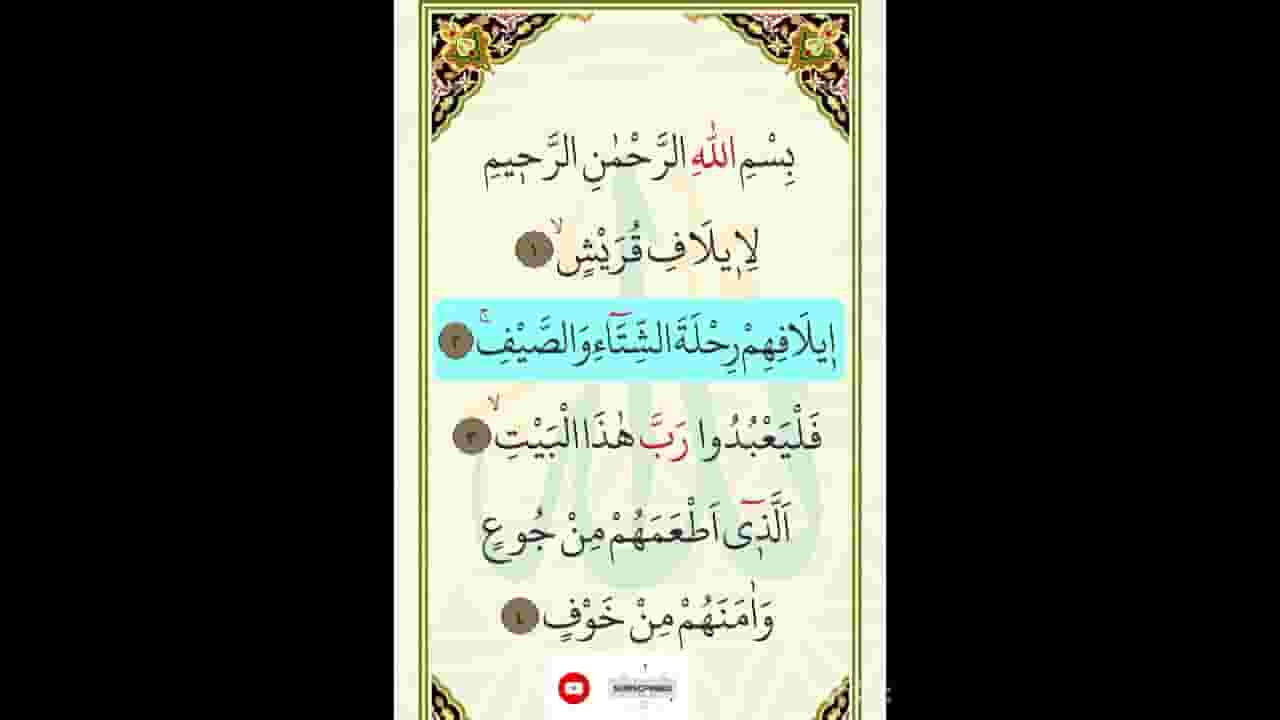 بِسْمِ اللّٰهِ الرَّحْمٰنِ الرَّحٖيمِ
لِاٖيلَافِ قُرَيْشٍۙ ١
اٖيلَافِهِمْ رِحْلَةَ الشِّتَٓاءِ وَالصَّيْفِۚ ٢
فَلْيَعْبُدُوا رَبَّ هٰذَا الْبَيْتِۙ ٣
اَلَّذٖٓى اَطْعَمَهُمْ مِنْ جُوعٍ
وَاٰمَنَهُمْ مِنْ خَوْفٍ ٤
SUBSCRIBED